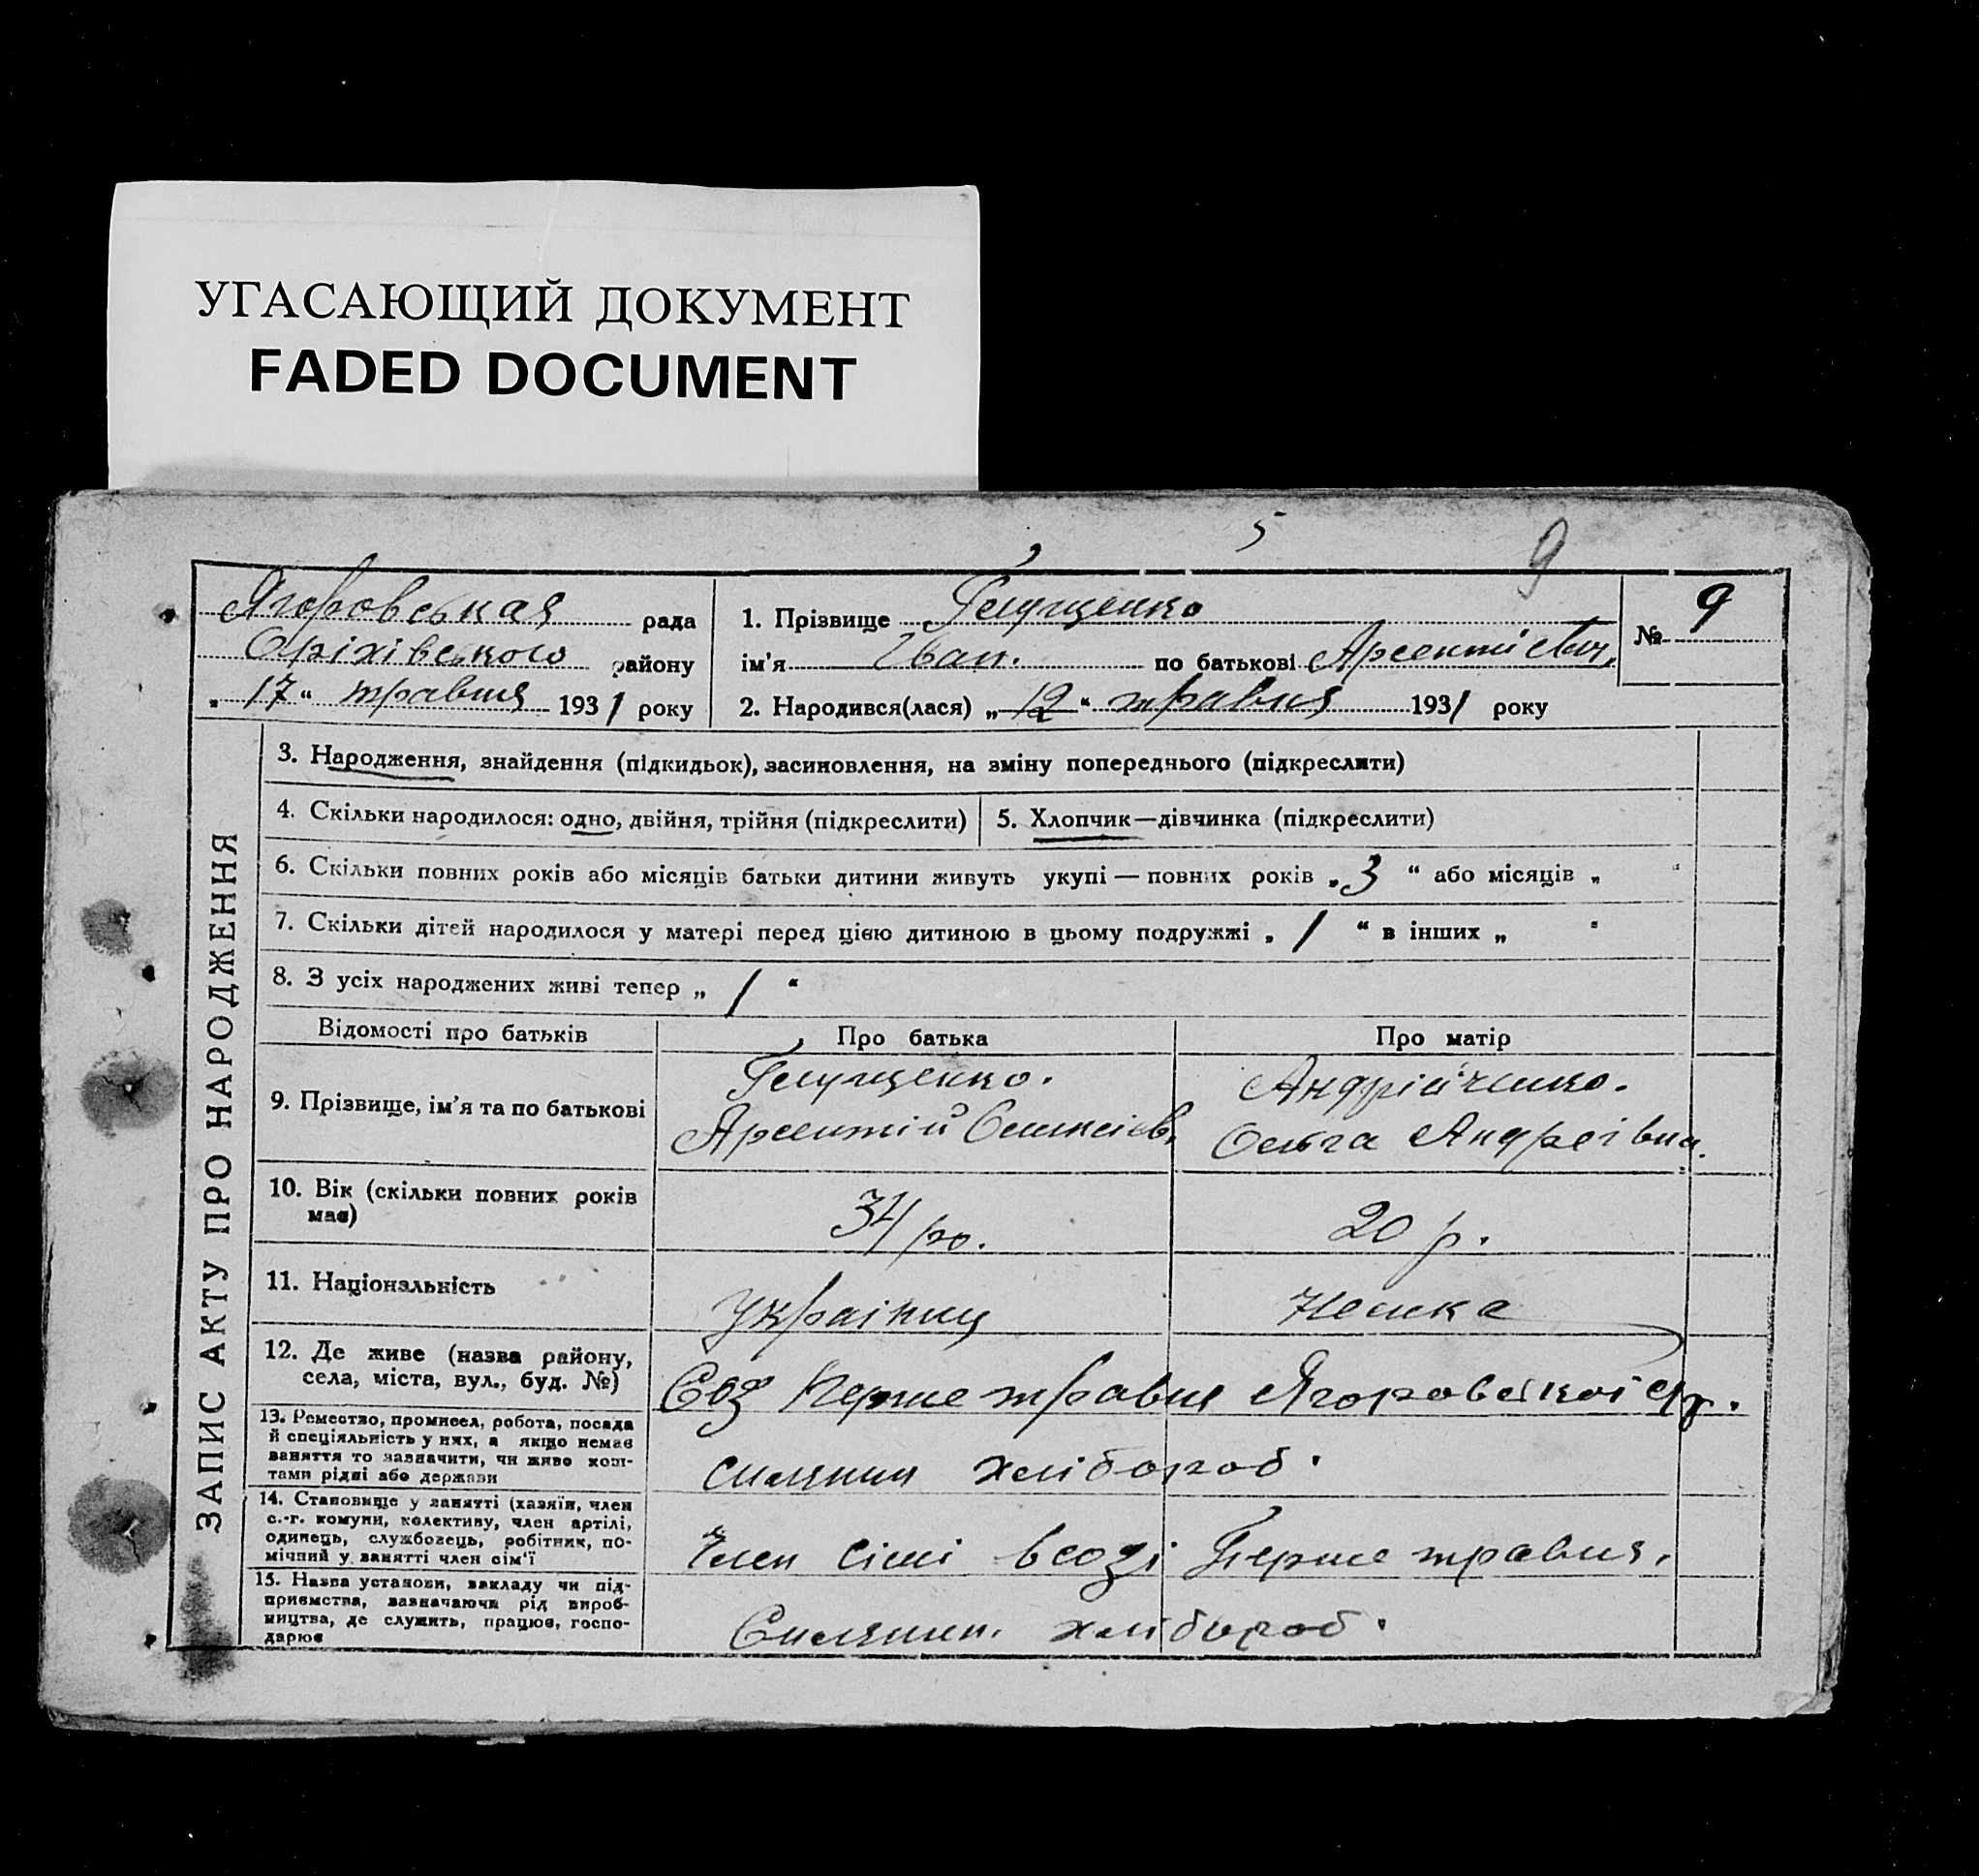 УГАСАЮЩИЙ ДОКУМЕНТ
FADED DOCUMENT
5 9
Ягоровськая рада
Оріхівського району
„ 17 “ травня 1931 року
1. Прізвище Глущенко
ім'я Іван. по батькові Арсентієвич,
2. Народився(лася) „ 12 “ травня 1931 року
№ 9
ЗАПИС АКТУ ПРО НАРОДЖЕННЯ
3. Народження, знайдення (підкидьок), засиновлення, на зміну попереднього (підкреслити)
4. Скільки народилося: одно, двійня, трійня (підкреслити)
5. Хлопчик—дівчинка (підкреслити)
6. Скільки повних років або місяців батьки дитини живуть укупі — повних років „ 3 “ або місяців „ “
7. Скільки дітей народилося у матері перед цією дитиною в цьому подружжі „ 1 “ в інших „ “
8. З усіх народжених живі тепер „ 1 “
Відомості про батьків Про батька Про матір
9. Прізвище, ім'я та по батькові
Глущенко.
Арсентій
Андрійченко.
Ольга Андреівна.
10. Вік (скільки повних років
має)
34 ро.
20 р.
11. Національність
Украінец
Немка
12. Де живе (назва району,
села, міста, вул., буд. №)
Соз Перше травня Ягоровськоі
13. Ремество, промисел, робота, посада
й спеціяльність у них, а якщо немає
заняття то зазначити, чи живе кош-
тами рідні або держави
хлібороб.
14. Становище у занятті (хазяїн, член
с.-г. комуни, колективу, член артілі,
одинець, службовець, робітник, по-
мічний у занятті член сім'ї
Член сімі всозі Перше травня.
15. Назва установи, закладу чи під-
приємства, зазначаючи рід вироб-
ництва, де служить, працює, госпо-
дарює
хлібороб.